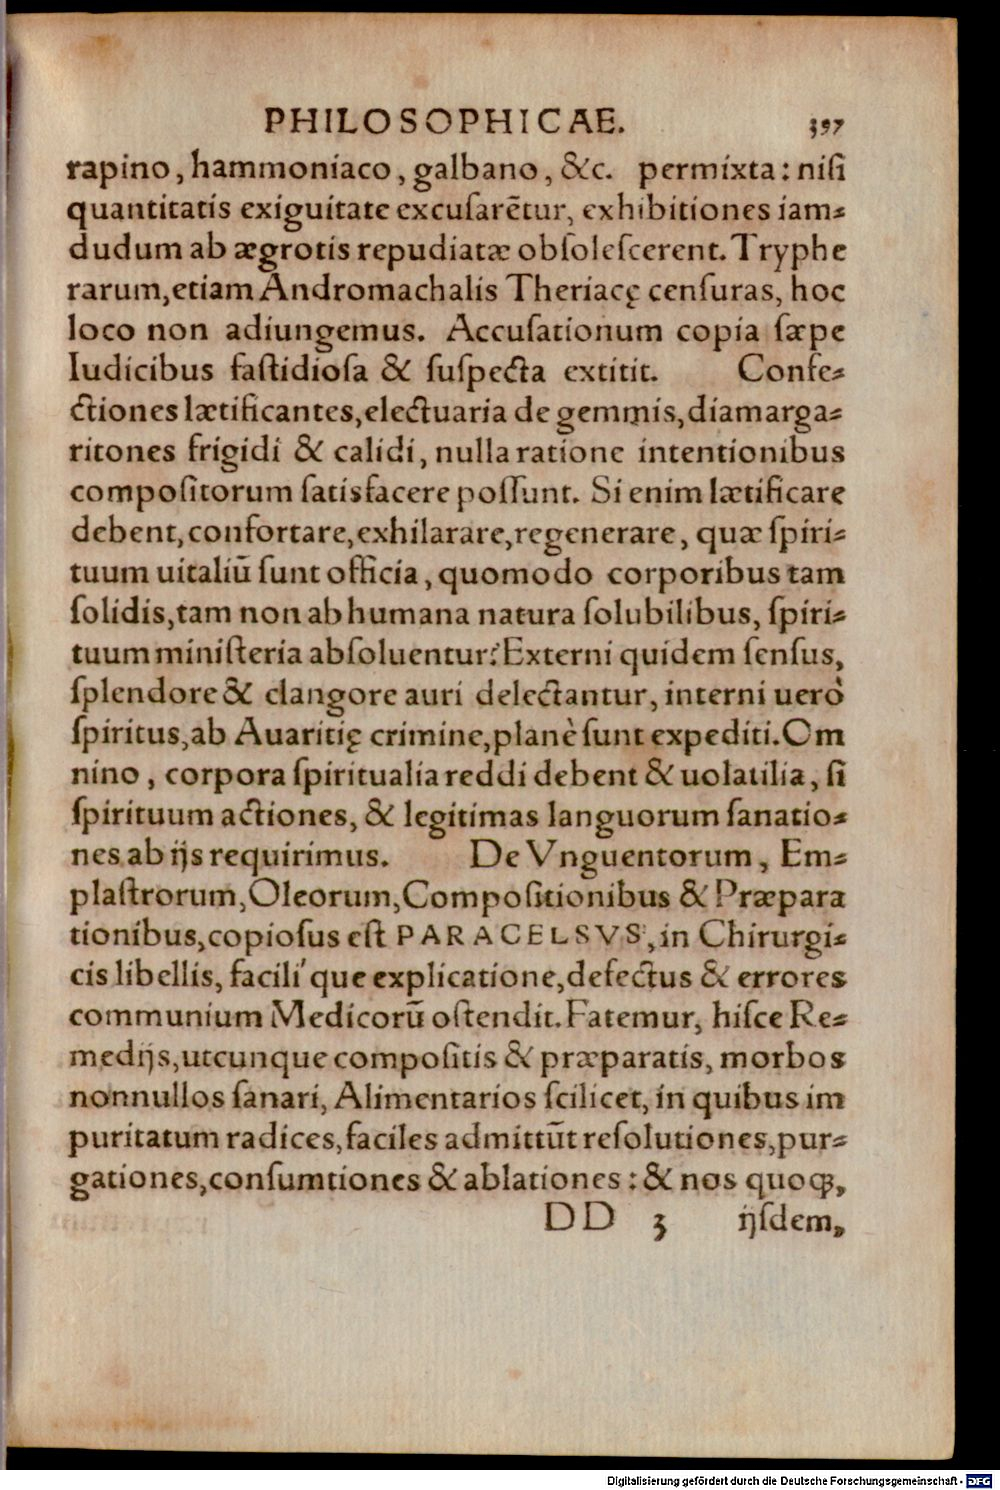 PHILOSOPHICAE. 397
rapino, hammoniaco, galbano, &c. permixta: nisi
quantitatis exiguitate excusarētur, exhibitiones iam⸗
dudum ab ægrotis repudiatæ obsolescerent. Tryphe
rarum, etiam Andromachalis Theriacę censuras, hoc
loco non adiungemus. Accusationum copia sæpe
Iudicibus fastidiosa & suspecta extitit. Confe⸗
ctiones lætificantes, electuaria de gemmis, diamarga⸗
ritones frigidi & calidi, nulla ratione intentionibus
compositorum satisfacere possunt. Si enim lætificare
debent, confortare, exhilarare, regenerare, quæ spiri⸗
tuum uitaliū sunt officia, quomodo corporibus tam
solidis, tam non ab humana natura solubilibus, spiri⸗
tuum ministeria absoluentur? Externi quidem sensus,
splendore & clangore auri delectantur, interni uerò
spiritus, ab Auaritię crimine, planè sunt expediti. Om
nino, corpora spiritualia reddi debent & uolatilia, si
spirituum actiones, & legitimas languorum sanatio⸗
nes ab ijs requirimus. De Vnguentorum, Em⸗
plastrorum, Oleorum, Compositionibus & Præpara
tionibus, copiosus est PARACELSVS, in Chirurgi⸗
cis libellis, facili'que explicatione, defectus & errores
communium Medicorū ostendit. Fatemur, hisce Re⸗
medijs, utcunque compositis & præparatis, morbos
nonnullos sanari, Alimentarios scilicet, in quibus im
puritatum radices, faciles admittūt resolutiones, pur⸗
gationes, consumtiones & ablationes: & nos quoq;,
DD 3 ijsdem,
Digitalisierung gefördert durch die Deutsche Forschungsgemeinschaft - DFG